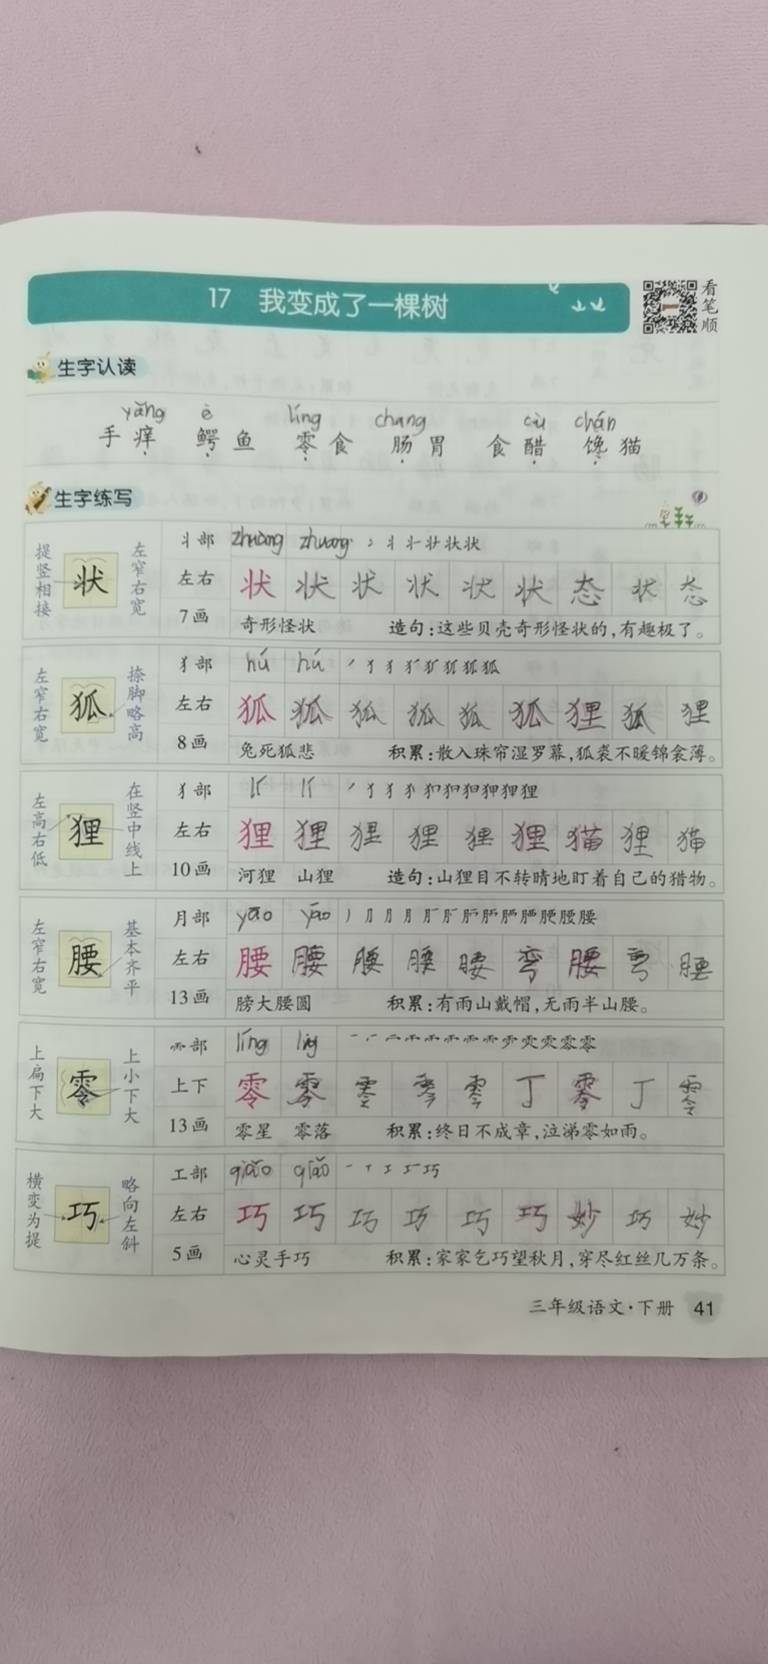 17 我变成了一棵树
看笔顺
生字认读
yǎng è líng chang cù chán
手痒 鳄鱼 零食 肠胃 食醋 馋猫
生字练写
提竖相接 状 左窄右宽
丬部 zhuàng zhuang
左右 状 状 状 状 状 状 态 状 态
7画 奇形怪状 造句:这些贝壳奇形怪状的,有趣极了。
左窄右宽 狐 捺脚略高
犭部 hú hú
左右 狐 狐 狐 狐 狐 狐 狸 狐 狸
8画 兔死狐悲 积累:散入珠帘湿罗幕,狐裘不暖锦衾薄。
左高右低 狸 在竖中线上
犭部 lí lí
左右 狸 狸 狸 狸 狸 狸 猫 狸 猫
10画 河狸 山狸 造句:山狸目不转睛地盯着自己的猎物。
左窄右宽 腰 基本齐平
月部 yāo yāo
左右 腰 腰 腰 腰 腰 弯 腰 弯 腰
13画 膀大腰圆 积累:有雨山戴帽,无雨半山腰。
上扁下大 零 上小下大
⻗部 líng líng
上下 零 零 零 零 零 丁 零 丁 零
13画 零星 零落 积累:终日不成章,泣涕零如雨。
横变为提 巧 略向左斜
工部 qiǎo qiǎo
左右 巧 巧 巧 巧 巧 巧 妙 巧 妙
5画 心灵手巧 积累:家家乞巧望秋月,穿尽红丝几万条。
三年级语文·下册 41